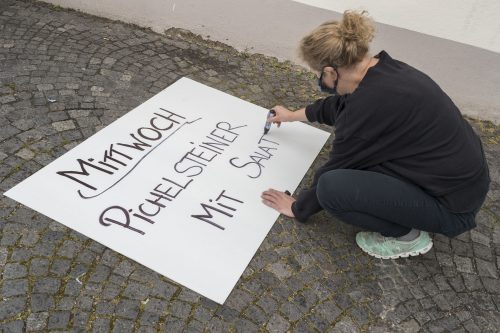 MITTWOCH
PICHELSTEINER
MIT SALAT